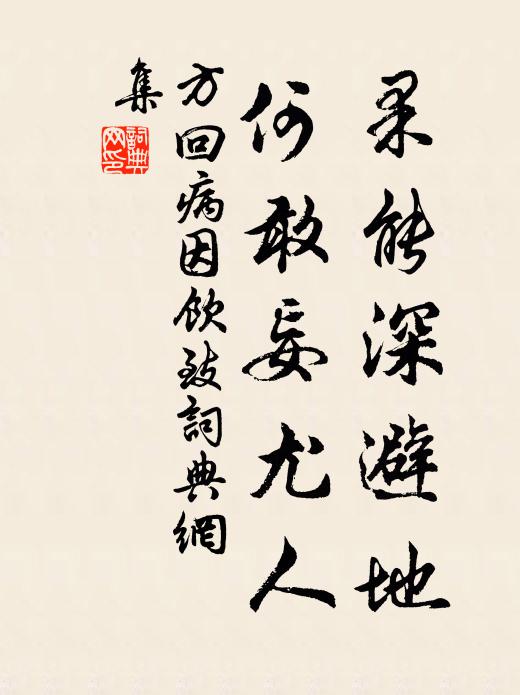 果能深避地
何敢妄尤人
方回病因飲致詞典網
集
詞典
网印